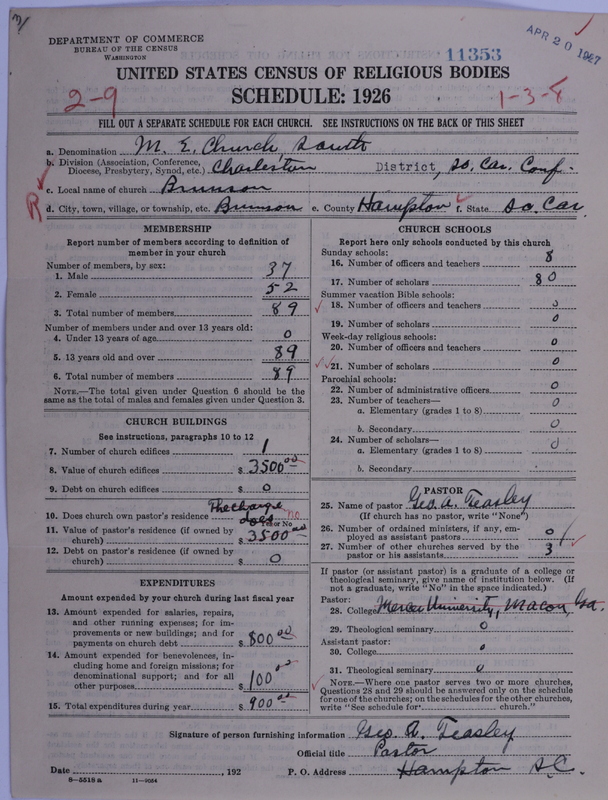 DEPARTMENT OF COMMERCE
BUREAU OF THE CENSUS
WASHINGTON
11353
APR 20 1927
UNITED STATES CENSUS OF RELIGIOUS BODIES
SCHEDULE: 1926
2-9
1-3-8
FILL OUT A SEPARATE SCHEDULE FOR EACH CHURCH. SEE INSTRUCTIONS ON THE BACK OF THIS SHEET
a. Denomination M. E. Church South
b. Division (Association, Conference, Diocese, Presbytery, Synod, etc.) Charleston District, So. Car. Conf.
c. Local name of church Brunson
R
d. City, town, village, or township, etc. Brunson e. County Hampton f. State So. Car.
MEMBERSHIP
Report number of members according to definition of
member in your church
Number of members, by sex:
1. Male 37
2. Female 52
3. Total number of members 89
Number of members under and over 13 years old:
4. Under 13 years of age 0
5. 13 years old and over 89
6. Total number of members 89
NOTE.—The total given under Question 6 should be
same as the total of males and females given under Question 3.
CHURCH BUILDINGS
See instructions, paragraphs 10 to 12
7. Number of church edifices 1
8. Value of church edifices $ 3500 00
9. Debt on church edifices $ 0
10. Does church own pastor's residence The charge does no
Yes or No
11. Value of pastor's residence (if owned by
church) $ 3500 00
12. Debt on pastor's residence (if owned by
church) $ 0
EXPENDITURES
Amount expended by your church during last fiscal year
13. Amount expended for salaries, repairs,
and other running expenses; for im-
provements or new buildings; and for
payments on church debt $ 800 00
14. Amount expended for benevolences, in-
cluding home and foreign missions; for
denominational support; and for all
other purposes $ 100 00
15. Total expenditures during year $ 900 00
CHURCH SCHOOLS
Report here only schools conducted by this church
Sunday schools:
16. Number of officers and teachers 8
17. Number of scholars 80
Summer vacation Bible schools:
18. Number of officers and teachers 0
19. Number of scholars 0
Week-day religious schools:
20. Number of officers and teachers 0
21. Number of scholars 0
Parochial schools:
22. Number of administrative officers 0
23. Number of teachers—
a. Elementary (grades 1 to 8) 0
b. Secondary 0
24. Number of scholars—
a. Elementary (grades 1 to 8) 0
b. Secondary
PASTOR
25. Name of pastor Geo. A. Teasley
(If church has no pastor, write "None")
26. Number of ordained ministers, if any, em-
ployed as assistant pastors 0
27. Number of other churches served by the
pastor or his assistants 3
If pastor (or assistant pastor) is a graduate of a college or
theological seminary, give name of institution below. (If
not a graduate, write "No" in the space indicated.)
Pastor:
28. College Mercer University, Macon, Ga.
29. Theological seminary 0
Assistant pastor:
30. College 0
31. Theological seminary 0
NOTE.—Where one pastor serves two or more churches,
Questions 28 and 29 should be answered only on the schedule
for one of the churches; on the schedules for the other churches,
write "See schedule for church."
Signature of person furnishing information Geo. A. Teasley
Official title Pastor
Date , 192 P. O. Address Hampton S.C.
8-5518 a 11-9054